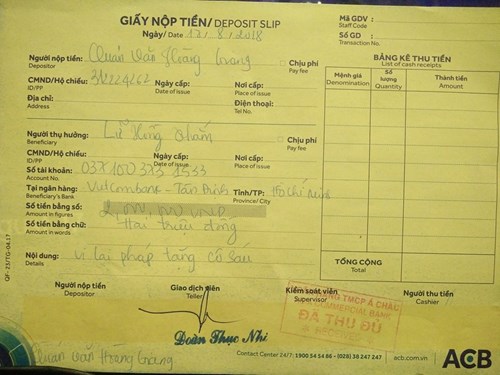 GIẤY NỘP TIỀN/ DEPOSIT SLIP
Ngày/ Date 17/8/2018
Mã GDV :
Staff Code
Số GD :
Transaction No.
Người nộp tiền: Quán Văn Hoàng Giang Chịu phí
Depositor Pay fee
CMND/Hộ chiếu: Ngày cấp: Nơi cấp:
ID/PP Date of issue Place of issue
Địa chỉ: Điện thoại:
Address Tel No.
Người thụ hưởng: Lữ Chịu phí
Beneficiary Pay fee
CMND/Hộ chiếu: Ngày cấp: Nơi cấp:
ID/PP Date of issue Place of issue
Số tài khoản: 037 100 373 1533
Account No.
Tại ngân hàng: Vietcombank - Tân Định Tỉnh/TP: Hồ Chí Minh
Beneficiary's Bank Province/ City
Số tiền bằng số:
Amount in figures
Số tiền bằng chữ: Hai triệu đồng
Amount in words
Nội dung: Vi lai pháp tặng cô Sáu
Details
BẢNG KÊ THU TIỀN
List of cash receipts
Mệnh giá Số lượng Thành tiền
Denomination Quantity Amount
TỔNG CỘNG
Total
Người nộp tiền Giao dịch viên Kiểm soát viên Người thu tiền
Depositor Teller Supervisor Cashier
NGÂN HÀNG TMCP Á CHÂU
COMMERCIAL BANK
ĐÃ THU ĐỦ
RECEIVED
Đoàn Thục Nhi
Quán Văn Hoàng Giang
Contact Center 24/7: 1900 54 54 86 - (028) 38 247 247
acb.com.vn
ACB
QF-23/TG-04.17